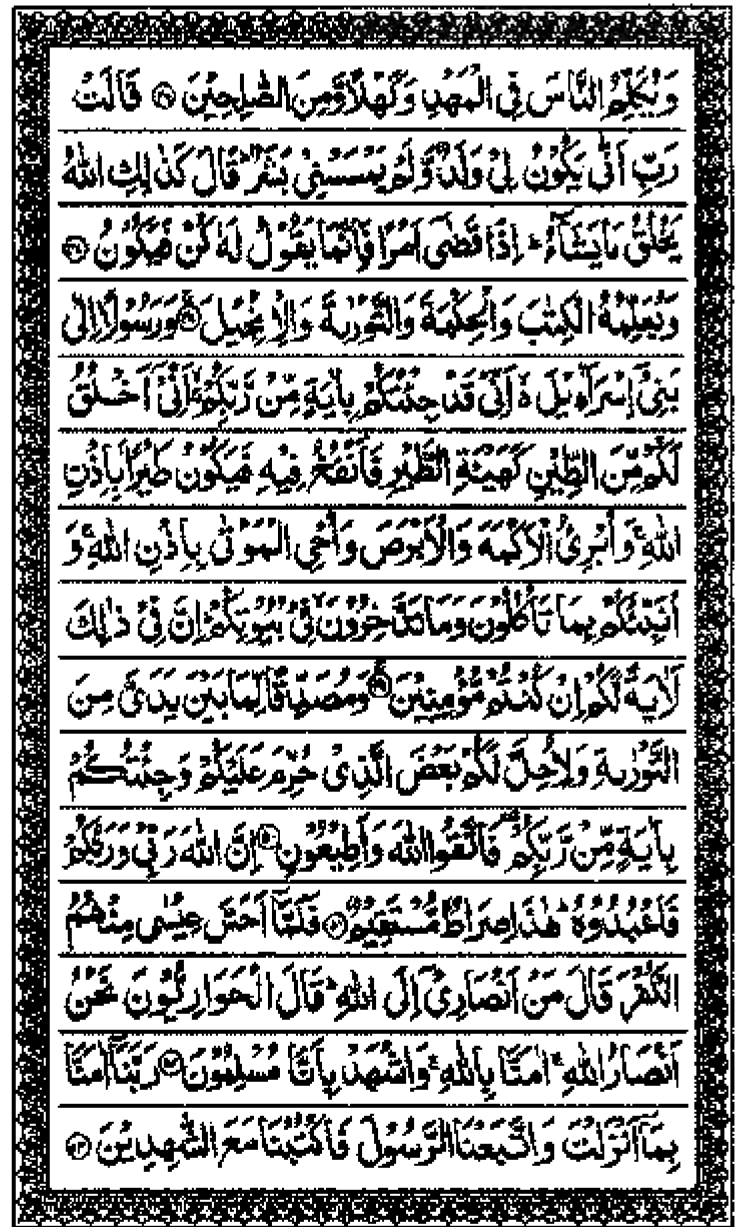 وَيُكَلِّمُ النَّاسَ فِي الْمَهْدِ وَكَهْلًا وَّمِنَ الصّٰلِحِيْنَ ۝ قَالَتْ
رَبِّ اَنّٰى يَكُوْنُ لِيْ وَلَدٌ وَّلَمْ يَمْسَسْنِيْ بَشَرٌ ؕ قَالَ كَذٰلِكِ اللّٰهُ
يَخْلُقُ مَا يَشَآءُ ؕ اِذَا قَضٰٓى اَمْرًا فَاِنَّمَا يَقُوْلُ لَهٗ كُنْ فَيَكُوْنُ ۝
وَيُعَلِّمُهُ الْكِتٰبَ وَالْحِكْمَةَ وَالتَّوْرٰىةَ وَالْاِنْجِيْلَ ۝ وَرَسُوْلًا اِلٰى
بَنِيْٓ اِسْرَآءِيْلَ ۙ اَنِّيْ قَدْ جِئْتُكُمْ بِاٰيَةٍ مِّنْ رَّبِّكُمْ ۙ اَنِّيْٓ اَخْلُقُ
لَكُمْ مِّنَ الطِّيْنِ كَهَيْـَٔةِ الطَّيْرِ فَاَنْفُخُ فِيْهِ فَيَكُوْنُ طَيْرًۢا بِاِذْنِ
اللّٰهِ ۚ وَاُبْرِئُ الْاَكْمَهَ وَالْاَبْرَصَ وَاُحْيِ الْمَوْتٰى بِاِذْنِ اللّٰهِ ۚ وَ
اُنَبِّئُكُمْ بِمَا تَاْكُلُوْنَ وَمَا تَدَّخِرُوْنَ ۙ فِيْ بُيُوْتِكُمْ ؕ اِنَّ فِيْ ذٰلِكَ
لَاٰيَةً لَّكُمْ اِنْ كُنْتُمْ مُّؤْمِنِيْنَ ۝ وَمُصَدِّقًا لِّمَا بَيْنَ يَدَيَّ مِنَ
التَّوْرٰىةِ وَلِاُحِلَّ لَكُمْ بَعْضَ الَّذِيْ حُرِّمَ عَلَيْكُمْ وَجِئْتُكُمْ
بِاٰيَةٍ مِّنْ رَّبِّكُمْ ۟ فَاتَّقُوا اللّٰهَ وَاَطِيْعُوْنِ ۝ اِنَّ اللّٰهَ رَبِّيْ وَرَبُّكُمْ
فَاعْبُدُوْهُ ؕ هٰذَا صِرَاطٌ مُّسْتَقِيْمٌ ۝ فَلَمَّآ اَحَسَّ عِيْسٰى مِنْهُمُ
الْكُفْرَ قَالَ مَنْ اَنْصَارِيْٓ اِلَى اللّٰهِ ؕ قَالَ الْحَوَارِيُّوْنَ نَحْنُ
اَنْصَارُ اللّٰهِ ۚ اٰمَنَّا بِاللّٰهِ ۚ وَاشْهَدْ بِاَنَّا مُسْلِمُوْنَ ۝ رَبَّنَآ اٰمَنَّا
بِمَآ اَنْزَلْتَ وَاتَّبَعْنَا الرَّسُوْلَ فَاكْتُبْنَا مَعَ الشّٰهِدِيْنَ ۝